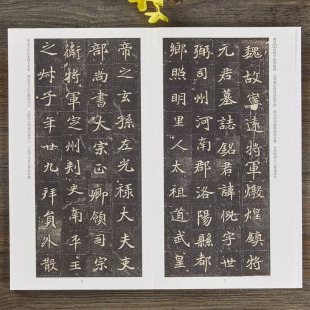 魏故寧遠將軍燉煌鎮將
元君墓誌銘君諱倪字世
弼司州河南郡洛陽縣都
鄉照明里人太祖道武皇
帝之玄孫左光祿大夫吏
部尚書大宗正卿領司宗
衛將軍定州刺史南平王
之叔子年廿九拜員外散